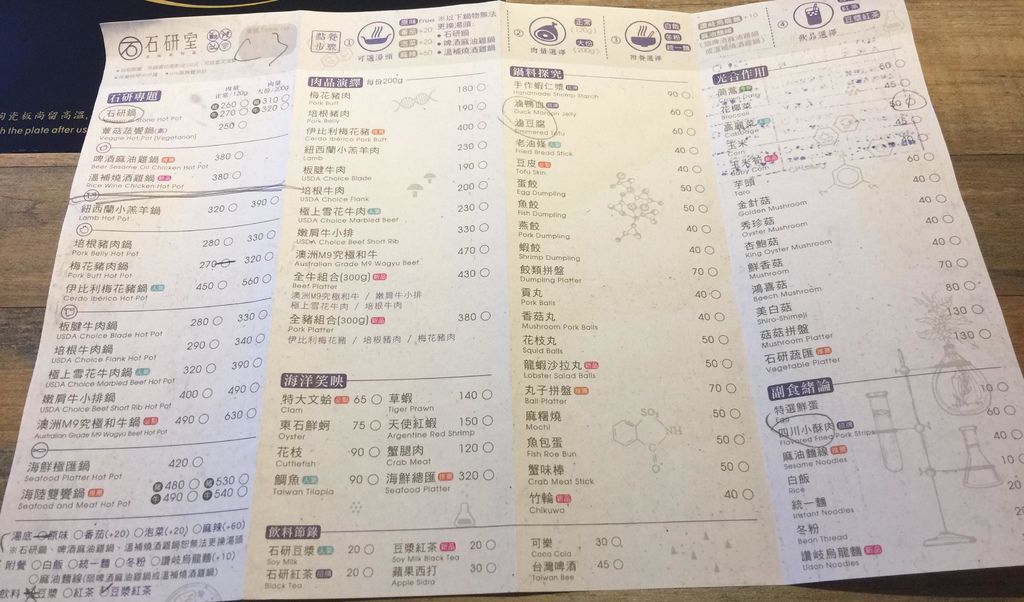 石研室
點餐步驟
① 可選湯頭
原味Free
番茄+20
泡菜+20
麻辣+60
※以下鍋物無法更換湯頭:
• 石研鍋
• 啤酒麻油雞鍋
• 溫補燒酒雞鍋
② 肉量選擇
正常(120g)
大份(200g)
③ 附餐選擇
白飯
冬粉
統一麵
讚岐烏龍麵+10
④ 飲品選擇
紅茶
豆漿紅茶
陶瓷板尚留高溫,
h the plate after us
石研專題
肉量 正常/120g
肉量 大份/200g
石研鍋 豬260 豬310
Classical Stone Hot Pot 牛270 牛320
蕈菇蔬饗鍋(素) 250
Veggie Hot Pot (Vegetarian)
啤酒麻油雞鍋 推薦 380
Beer Sesame Oil Chicken Hot Pot
溫補燒酒雞鍋 新品 380
Rice Wine Chicken Hot Pot
紐西蘭小羔羊鍋 320 390
Lamb Hot Pot
培根豬肉鍋 280 330
Pork Belly Hot Pot
梅花豬肉鍋 270 320
Pork Butt Hot Pot
伊比利梅花豬鍋 人氣 450 560
Cerdo Ibérico Hot Pot
板腱牛肉鍋 280 330
USDA Choice Blade Hot Pot
培根牛肉鍋 290 340
USDA Choice Flank Hot Pot
極上雪花牛肉鍋 人氣 320 390
USDA Choice Marbled Beef Hot Pot
嫩肩牛小排鍋 400 490
USDA Choice Beef Short Rib Hot Pot
澳洲M9究極和牛鍋 必點 490 630
Australian Grade M9 Wagyu Beef Hot Pot
海鮮極匯鍋 420
Seafood Platter Hot Pot
海陸雙饗鍋 推薦 豬480 豬530
Seafood and Meat Hot Pot 牛490 牛540
湯底 原味 番茄(+20) 泡菜(+20) 麻辣(+60)
※石研鍋、啤酒麻油雞鍋、溫補燒酒雞鍋恕無法更換湯頭
附餐 白飯 統一麵 冬粉 讚岐烏龍麵(+10)
麻油麵線(限啤酒麻油雞鍋或溫補燒酒雞鍋)
飲料 豆漿 紅茶 豆漿紅茶
肉品演繹 每份200g
梅花豬肉 180
Pork Butt
培根豬肉 190
Pork Belly
伊比利梅花豬 推薦 400
Cerdo Ibérico
紐西蘭小羔羊肉 230
Lamb
板腱牛肉 190
USDA Choice Blade
培根牛肉 200
USDA Choice Flank
極上雪花牛肉 人氣 230
USDA Choice Marbled Beef
嫩肩牛小排 330
USDA Choice Beef Short Rib
澳洲M9究極和牛 470
Australian Grade M9 Wagyu Beef
全牛組合(300g) 新品 430
Beef Platter
澳洲M9究極和牛 / 嫩肩牛小排
極上雪花牛肉 / 培根牛肉
全豬組合(300g) 新品 380
Pork Platter
伊比利梅花豬 / 培根豬肉 / 梅花豬肉
海洋笑映
特大文蛤 必點 65 草蝦 140
Clam Tiger Prawn
東石鮮蚵 75 天使紅蝦 150
Oyster Argentine Red Shrimp
花枝 90 蟹腿肉 120
Cuttlefish Crab Meat
鯛魚 人氣 90 海鮮總匯 推薦 320
Taiwan Tilapia Seafood Platter
飲料節錄
石研豆漿 人氣 20 豆漿紅茶 新品 20 可樂 30
Soy Milk Soy Milk Black Tea Coca Cola
石研紅茶 招牌 20 蘋果西打 30 台灣啤酒 45
Black Tea Apple Sidra Taiwan Beer
鍋料探究
手作蝦仁漿 招牌 90
Handmade Shrimp Starch
滷鴨血 招牌 40
Duck Maroon Jelly
滷豆腐 60
Simmered Tofu
老油條 人氣 40
Fried Bread Stick
豆皮 必點 40
Tofu Skin
蛋餃 50
Egg Dumpling
魚餃 50
Fish Dumpling
燕餃 40
Pork Dumpling
蝦餃 40
Shrimp Dumpling
餃類拼盤 70
Dumpling Platter
貢丸 40
Pork Balls
香菇丸 40
Mushroom Pork Balls
花枝丸 50
Squid Balls
龍蝦沙拉丸 新品 50
Lobster Salad Balls
丸子拼盤 推薦 70
Ball Platter
麻糬燒 50
Mochi
魚包蛋 50
Fish Roe Bun
蟹味棒 50
Crab Meat Stick
竹輪 新品 40
Chikuwa
SO₃
NH
光合作用
茼蒿 招牌
花椰菜
Broccoli
高麗菜 人氣
玉米
玉米筍
Baby Corn
芋頭 60
Taro
金針菇 40
Golden Mushroom
秀珍菇 40
Oyster Mushroom
杏鮑菇 40
King Oyster Mushroom
鮮香菇 40
Mushroom
鴻喜菇 40
Beech Mushroom
美白菇 80
Shiro-Shimeji
菇菇拼盤 130
Mushroom Platter
石研蔬匯 推薦 130
Vegetable Platter
副食緒論
特選鮮蛋 10
Egg
四川小酥肉 招牌 60
Flavored Fried Pork Strips
麻油麵線 推薦
Sesame Noodles
白飯
Rice
統一麵
Instant Noodles
冬粉
Bean Thread
讚岐烏龍麵 新品
Udon Noodles